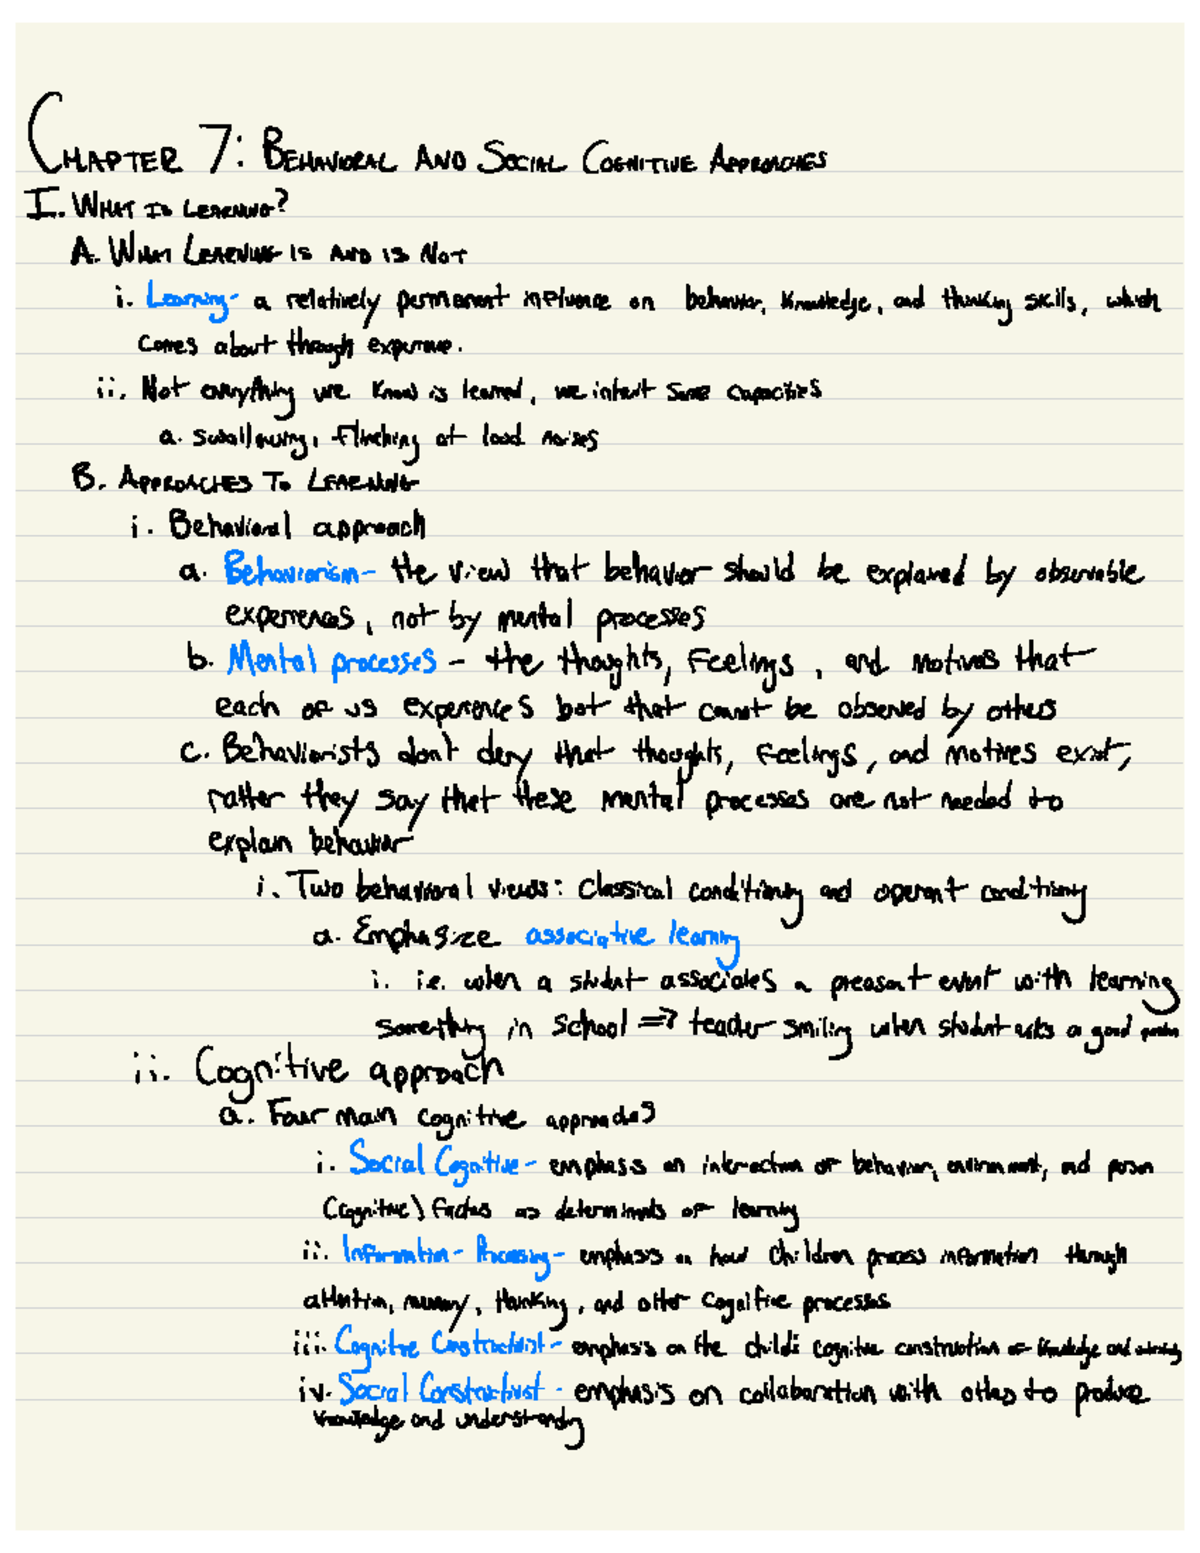 CHAPTER 7: BEHAVIORAL AND SOCIAL COGNITIVE APPROACHES
I. WHAT IS LEARNING?
A. WHAT LEARNING IS AND IS NOT
i. Learning- a relatively permanent influence on behavior, knowledge, and thinking skills, which
comes about through experience.
ii. Not everything we know is learned, we inherit some capacities
a. swallowing, flinching at loud noises
B. APPROACHES TO LEARNING
i. Behavioral approach
a. Behaviorism- the view that behavior should be explained by observable
experiences, not by mental processes
b. Mental processes - the thoughts, feelings, and motives that
each of us experiences but that cannot be observed by others
c. Behaviorists don't deny that thoughts, feelings, and motives exist,
rather they say that these mental processes are not needed to
explain behavior
i. Two behavioral views: classical conditioning and operant conditioning
a. Emphasize associative learning
i. i.e. when a student associates a pleasant event with learning
something in school => teacher smiling when student asks a good
ii. Cognitive approach
a. Four main cognitive approaches
i. Social Cognitive- emphasis on interaction of behavior, environment, and person
(cognitive) factors as determinants of learning
ii. Information-Processing- emphasis on how children process information through
attention, memory, thinking, and other cognitive processes
iii. Cognitive Constructivist- emphasis on the child's cognitive construction of knowledge and
iv. Social Constructivist - emphasis on collaboration with others to produce
knowledge and understanding